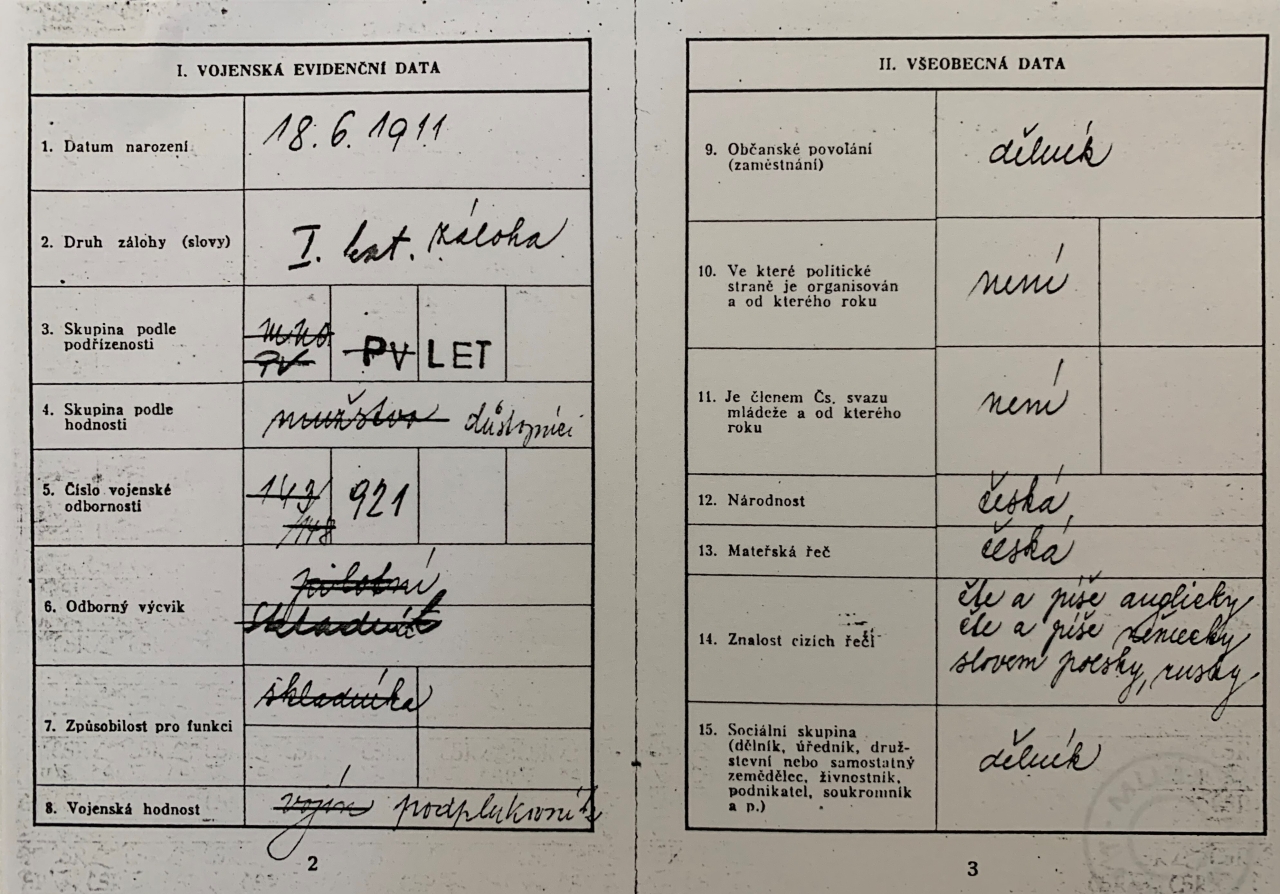 I. VOJENSKÁ EVIDENČNÍ DATA
1. Datum narození
18. 6. 1911
2. Druh zálohy (slovy)
I. kat. záloha
3. Skupina podle
podřízenosti
mno
PV
PV
LET
4. Skupina podle
hodnosti
mužstvo důstojníci
5. Číslo vojenské
odbornosti
143
148
921
6. Odborný výcvik
pilotní
skladník
7. Způsobilost pro funkci
skladníka
8. Vojenská hodnost
vojín podplukovník
2
II. VŠEOBECNÁ DATA
9. Občanské povolání
(zaměstnání)
dělník
10. Ve které politické
straně je organisován
a od kterého roku
není
11. Je členem Čs. svazu
mládeže a od kterého
roku
není
12. Národnost
česká
13. Mateřská řeč
česká
14. Znalost cizích řečí
čte a píše anglicky
čte a píše německy
slovem polsky, rusky
15. Sociální skupina
(dělník, úředník, druž-
stevní nebo samostatný
zemědělec, živnostník,
podnikatel, soukromník
a p.)
dělník
3